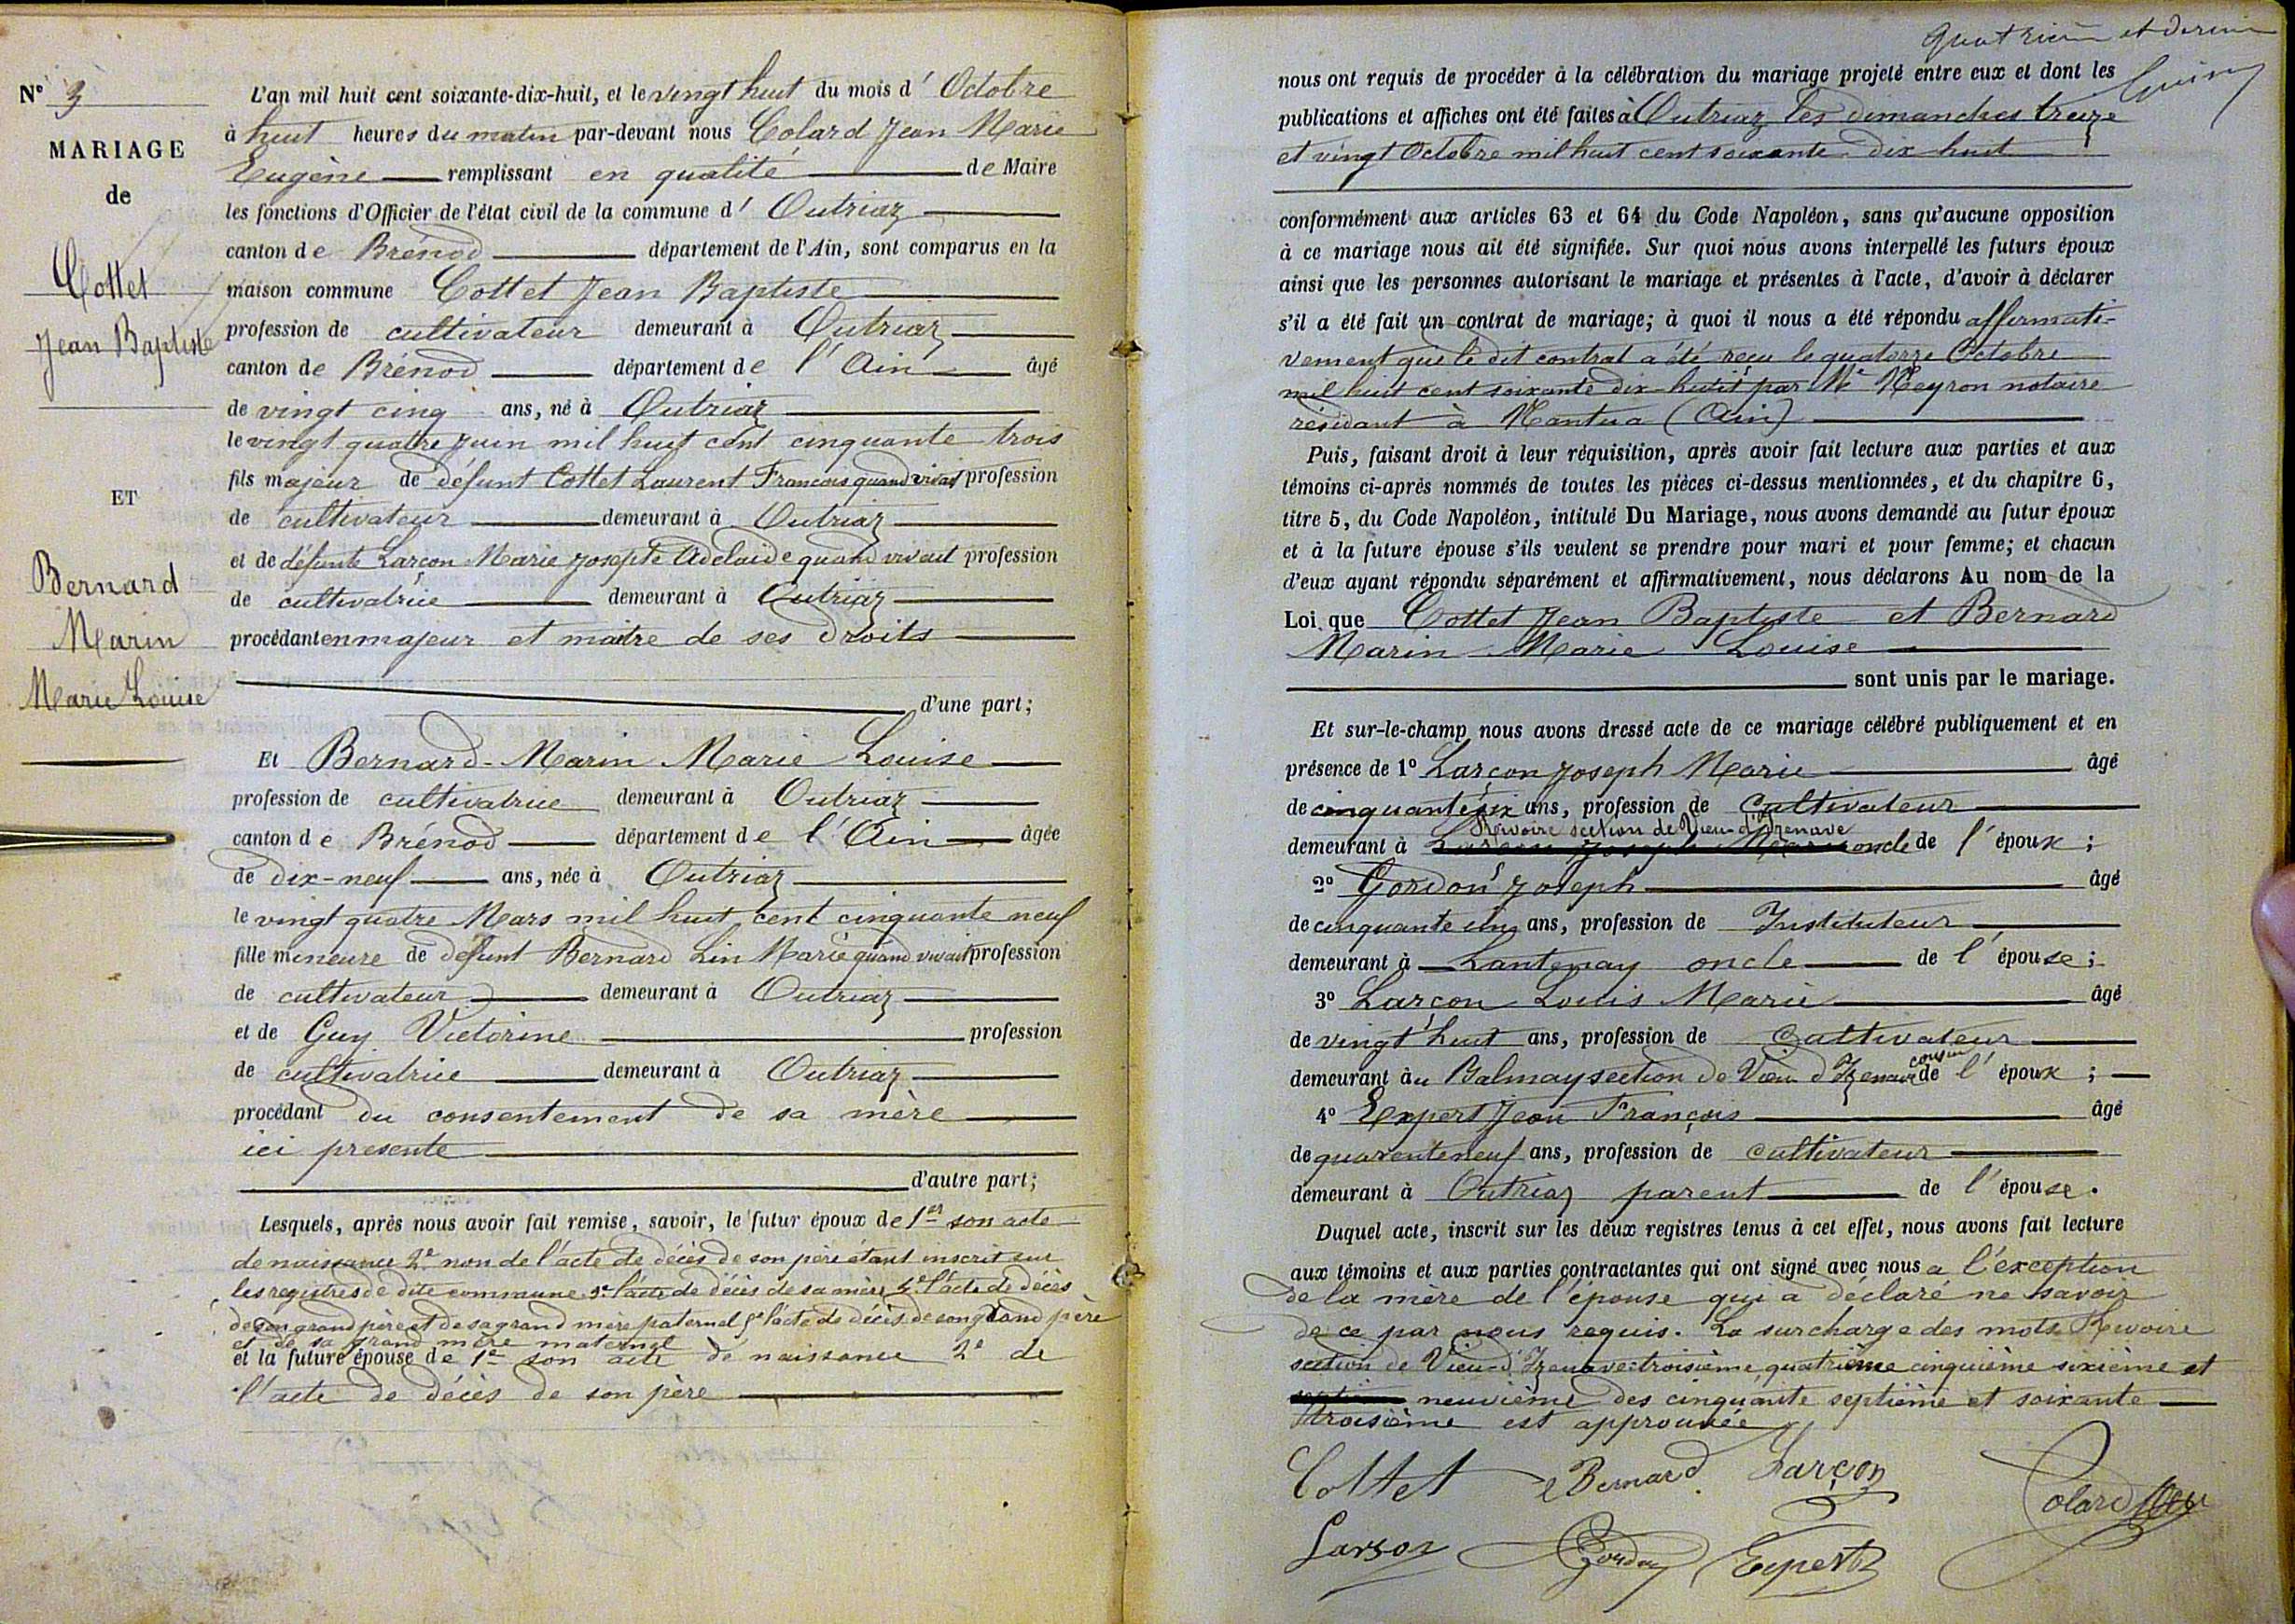 N° 3
MARIAGE
de
Cottet
Jean Baptiste
ET
Bernard
Marin
Marie Louise
L'an mil huit cent soixante-dix-huit, et le vingt huit du mois d' Octobre
à huit heures du matin par-devant nous Colard Jean Marie
Eugène remplissant en qualité de Maire
les fonctions d'Officier de l'état civil de la commune d' Outriaz
canton de Brénod département de l'Ain, sont comparus en la
maison commune Cottet Jean Baptiste
profession de cultivateur demeurant à Outriaz
canton de Brénod département de l'Ain âgé
de vingt cinq ans, né à Outriaz
le vingt quatre Juin mil huit cent cinquante trois
fils majeur de défunt Cottet Laurent Francois quand vivait profession
de cultivateur demeurant à Outriaz
et de défunte Larçon Marie Josephte Adelaide quand vivait profession
de cultivatrice demeurant à Outriaz
procédant en majeur et maitre de ses droits
d'une part;
Et Bernard-Marin Marie Louise
profession de cultivatrice demeurant à Outriaz
canton de Brénod département de l'Ain âgée
de dix-neuf ans, née à Outriaz
le vingt quatre Mars mil huit cent cinquante neuf
fille mineure de défunt Bernard Lin Marie quand vivait profession
de cultivateur demeurant à Outriaz
et de Guy Victorine profession
de cultivatrice demeurant à Outriaz
procédant du consentement de sa mère
ici presente
d'autre part;
Lesquels, après nous avoir fait remise, savoir, le futur époux de 1er son acte
de naissance 2e non de l'acte de décès de son père étant inscrit sur
les registres de dite commune 3e l'acte de décès de sa mère 4e l'acte de décès
de son grand père et de sa grand mère paternel 5e l'acte de décès de son grand père
et de sa grand mère maternel
et la future épouse de 1er son acte de naissance 2e de
l'acte de décès de son père
Quatrième et dernier
nous ont requis de procéder à la célébration du mariage projeté entre eux et dont les
publications et affiches ont été faites à Outriaz les dimanches treize
et vingt Octobre mil huit cent soixante dix huit
conformément aux articles 63 et 64 du Code Napoléon, sans qu'aucune opposition
à ce mariage nous ait été signifiée. Sur quoi nous avons interpellé les futurs époux
ainsi que les personnes autorisant le mariage et présentes à l'acte, d'avoir à déclarer
s'il a été fait un contrat de mariage; à quoi il nous a été répondu affirmati-
vement que le dit contrat a été reçu le quatorze Octobre
mil huit cent soixante dix-huit par Me Neyron notaire
résidant à Nantua (Ain)
Puis, faisant droit à leur réquisition, après avoir fait lecture aux parties et aux
témoins ci-après nommés de toutes les pièces ci-dessus mentionnées, et du chapitre 6,
titre 5, du Code Napoléon, intitulé Du Mariage, nous avons demandé au futur époux
et à la future épouse s'ils veulent se prendre pour mari et pour femme; et chacun
d'eux ayant répondu séparément et affirmativement, nous déclarons Au nom de la
Loi que Cottet Jean Baptiste et Bernard
Marin Marie Louise
sont unis par le mariage.
Et sur-le-champ nous avons dressé acte de ce mariage célébré publiquement et en
présence de 1° Larçon Joseph Marie âgé
de cinquante six ans, profession de Cultivateur
Rivoire section de Vieu-d'Izenave
demeurant à Larçon Joseph Marie oncle de l'époux;
2° Gordon Joseph âgé
de cinquante un ans, profession de Instituteur
demeurant à Lantenay oncle de l'épouse;
3° Larçon Louis Marie âgé
de vingt huit ans, profession de Cultivateur
demeurant au Balmay section de Vieu d'Izenave cousin de l'époux;
4° Expert Jean François âgé
de quarante neuf ans, profession de cultivateur
demeurant à Outriaz parent de l'épouse.
Duquel acte, inscrit sur les deux registres tenus à cet effet, nous avons fait lecture
aux témoins et aux parties contractantes qui ont signé avec nous a l'exception
de la mère de l'épouse qui a déclaré ne savoir
de ce par nous requis. La surcharge des mots Rivoire
section de Vieu-d'Izenave troisième, quatrième cinquième sixième et
neuvième des cinquante septième et soixante
troisième est approuvée
Cottet Bernard Larçon
Colard
Larçon Gordon Expert